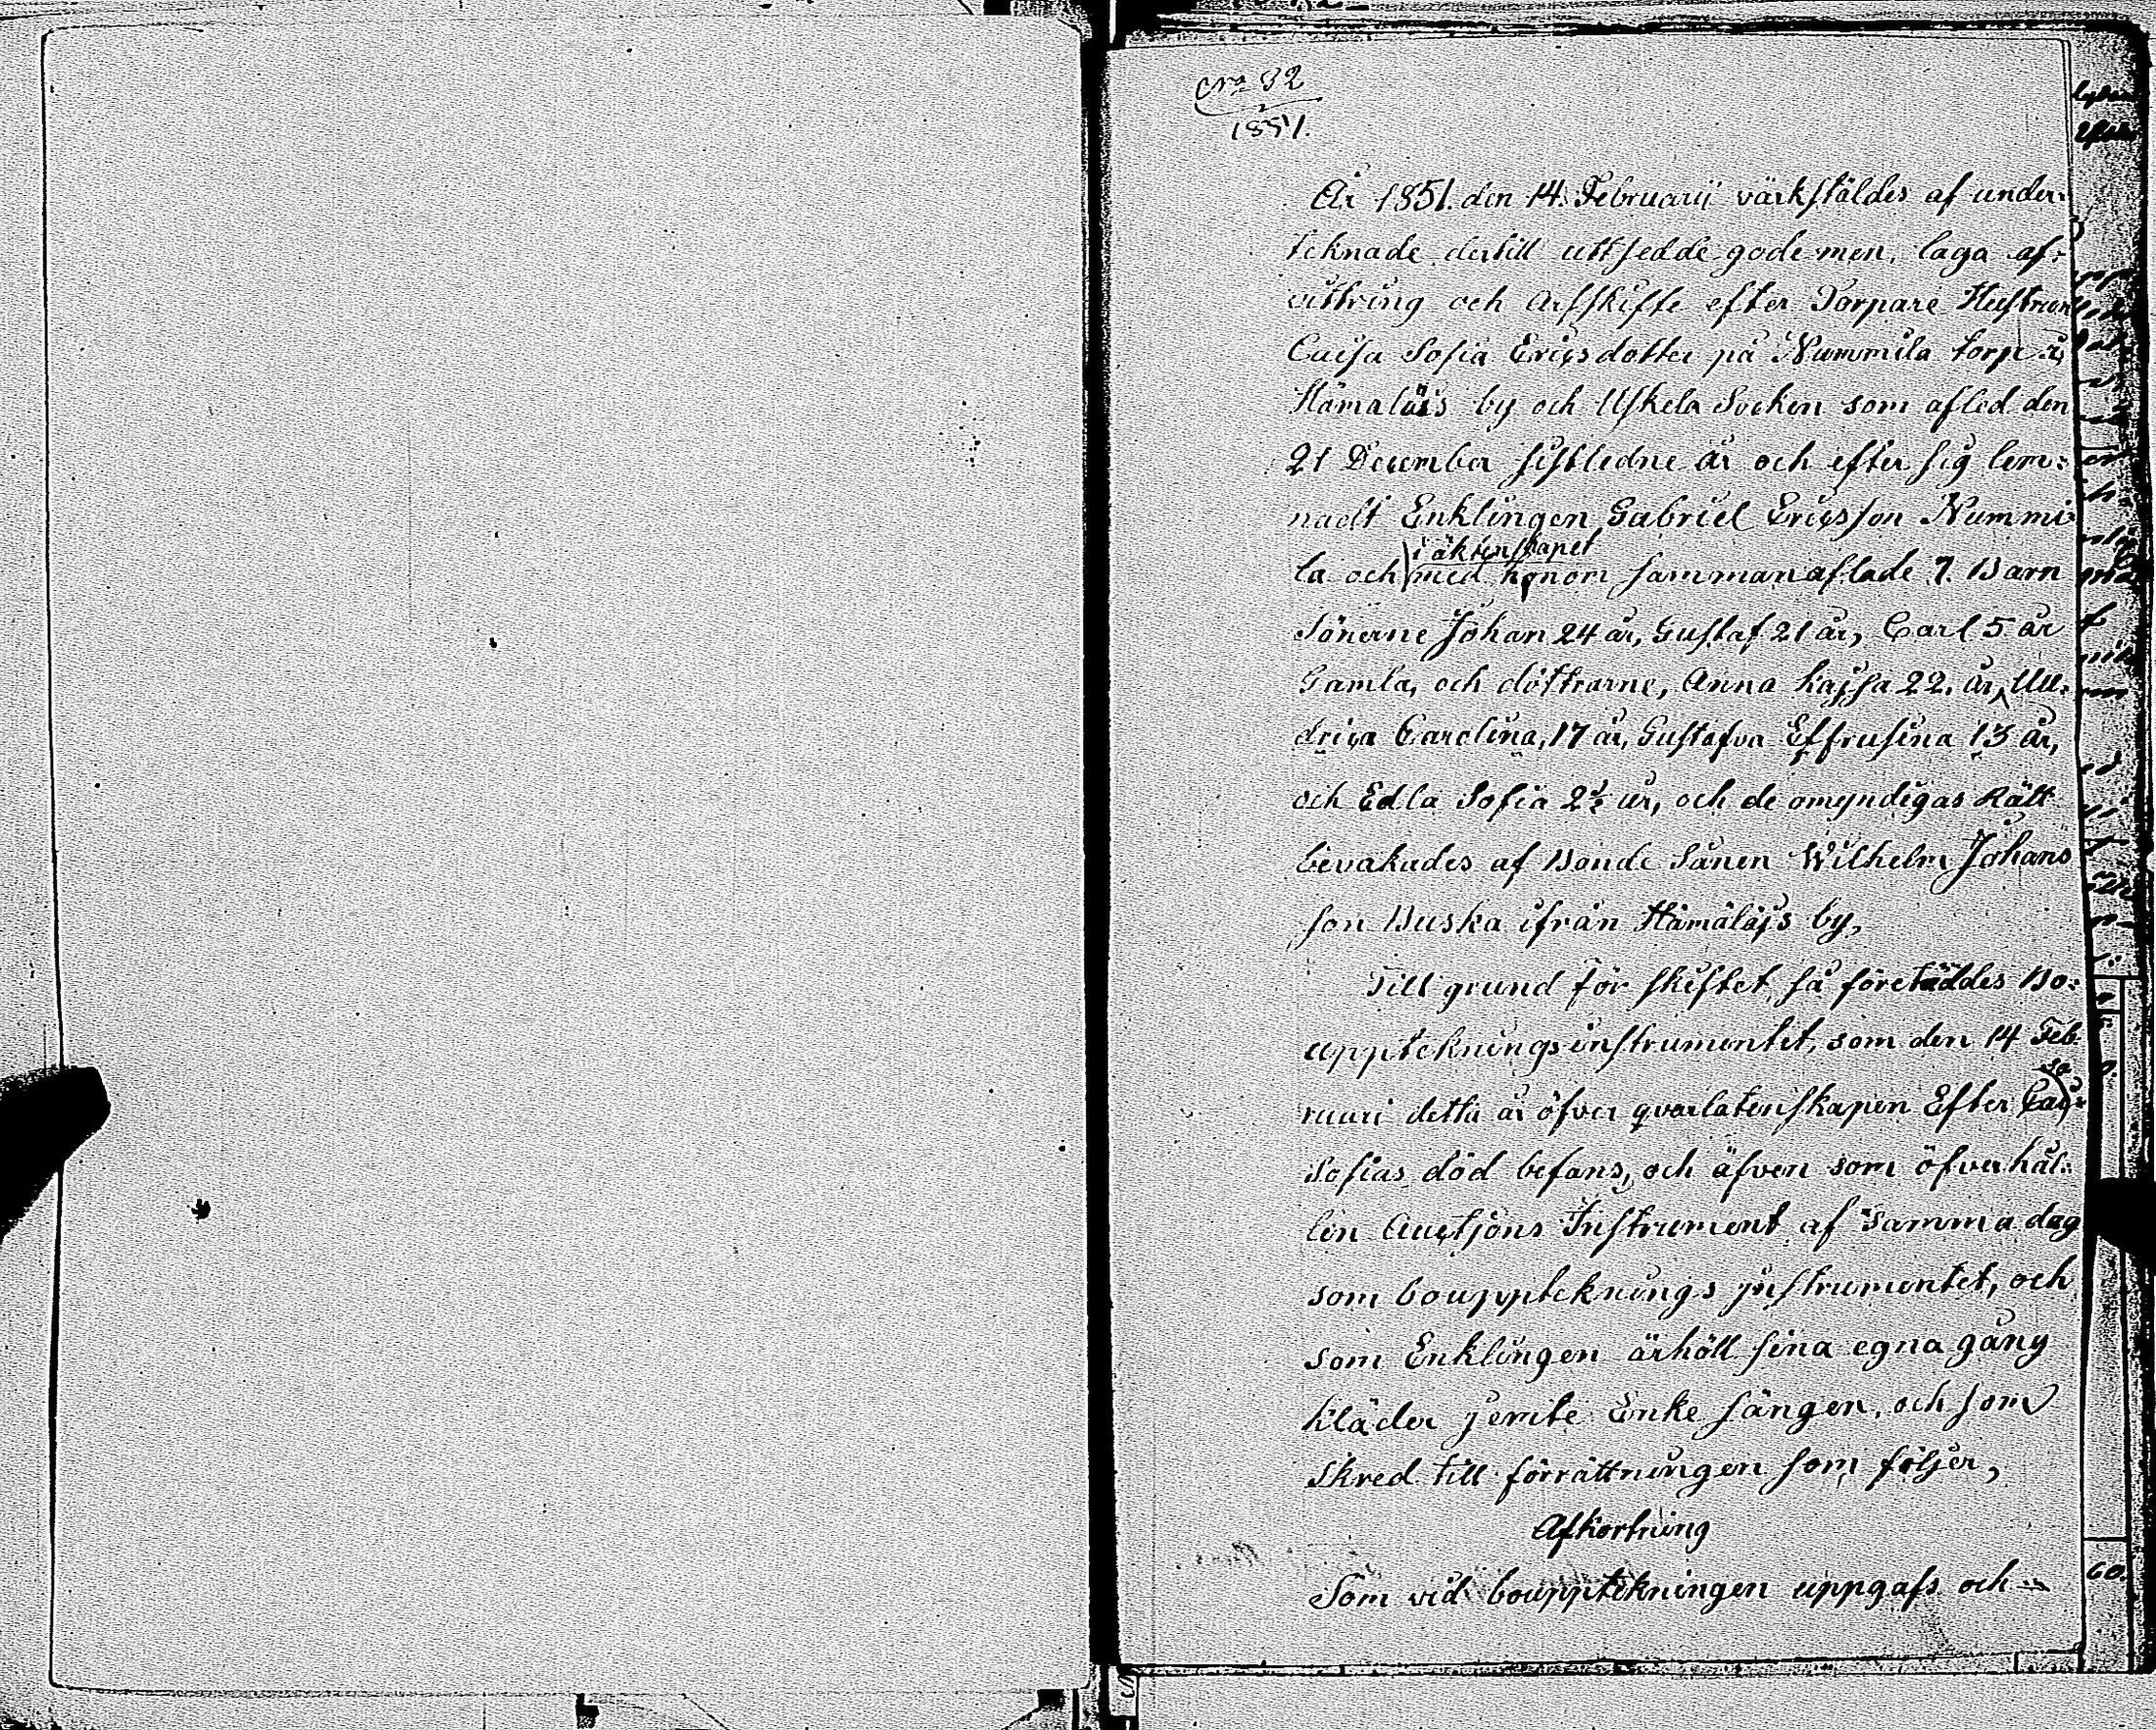 Nro 32
1851.
År 1851. den 14. Februarij värkstäldes af under:
teknade dertill uttsedde gode men, laga af:
vittring och arfskifte efter Torpare Hustrun
Caisa Sofia Ericsdotter på Nummila torp i
Hämaläis by och Uskela Socken som afled den
21 December sistledne år och efter sig lem:
nadt Enklingen Gabriel Ericsson Nummi:
i äktenskapet
la och med honom sammanaflade 7. Barn
Sönerne Johan 24 år, Gustaf 21 år, Carl 5 år
Gamla, och döttrarne, Anna Kajsa 22. år, Ull:
drica Carolina, 17 år, Gustafva Effrusina 13 år,
och Edla Sofia 2½ år, och de omyndigas Rätt
bevakades af Bonde Sånen Wilhelm Johans
son Buska ifrån Hämäläjs by,
Till grund för skiftet, så företäddes Bo:
uppteknings instrumentet, som den 14 Feb:
sa
ruari detta år öfver qvarlatenskapen Efter Caj:
Sofias död befans, och äfven som öfverhål:
len Auctjons Instrument af samma dag
som bouppteknings jnstrumentet, och
som Enklingen ärhöll sina egna gång
kläder jemte Enke sängen, och som
skred till förrättningen som följer,
Afkortning
Som vid boupptekningen uppgafs och
60.